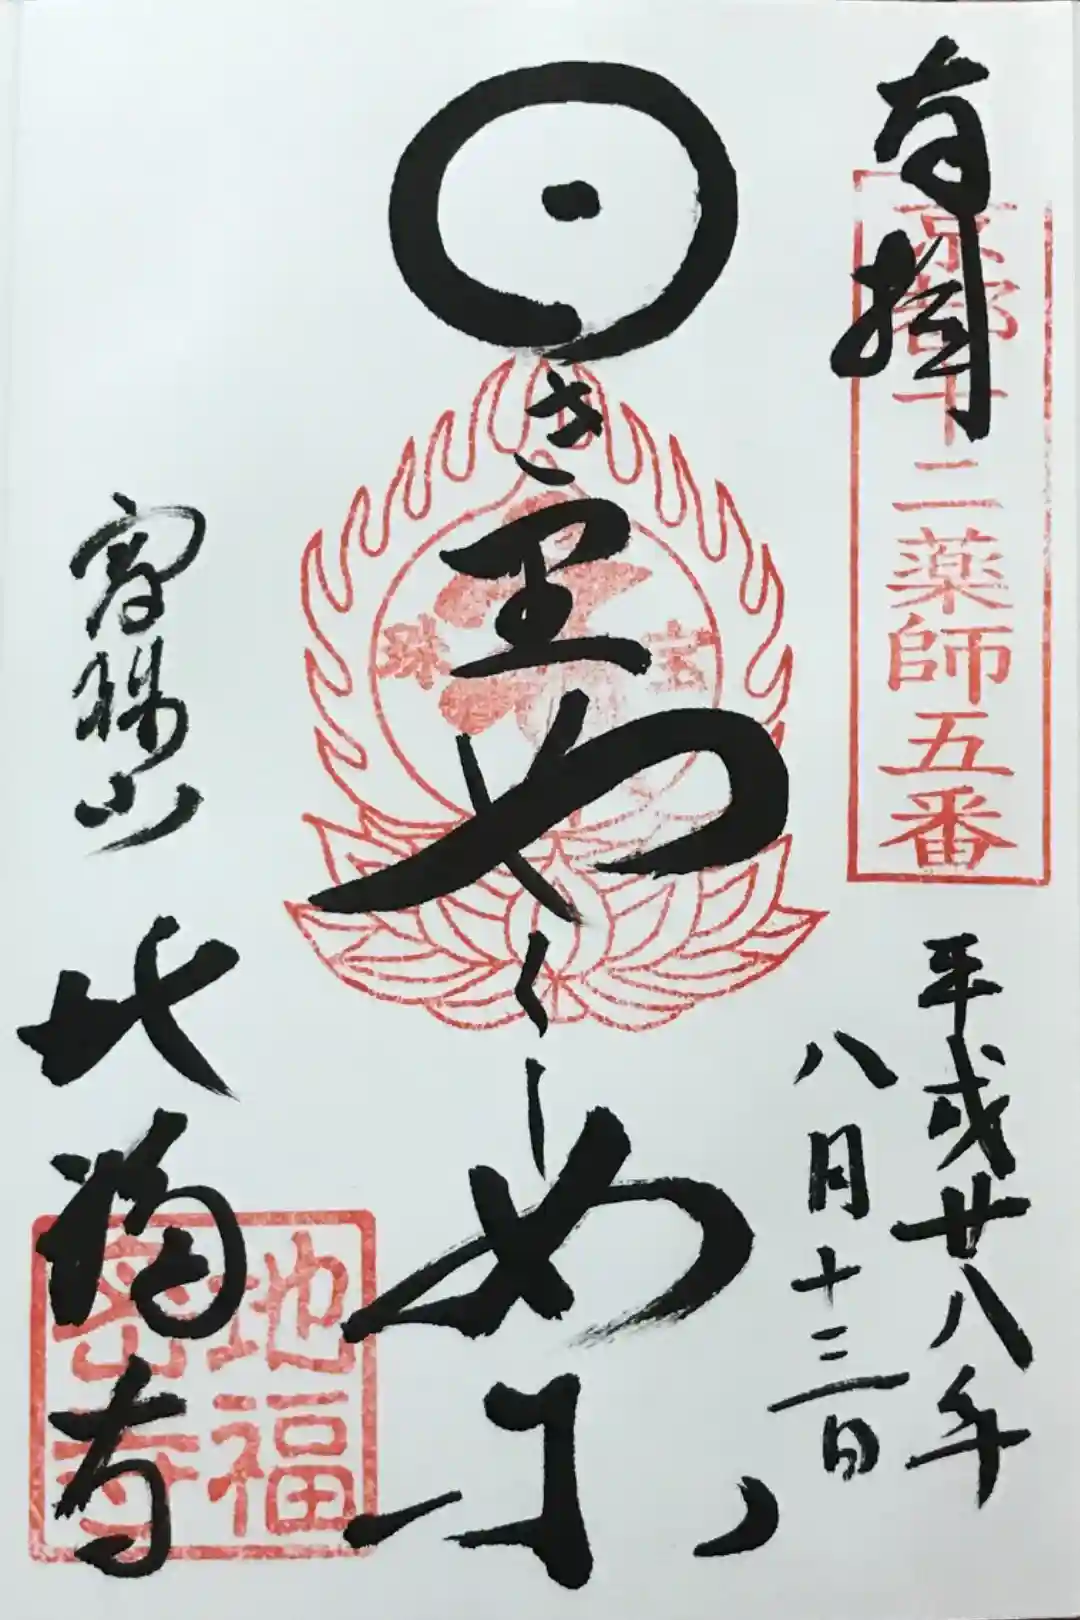 奉拝
京都十二薬師五番
平成廿八年
八月十三日
き里やくし如来
宝珠
寳珠山 地福寺
地福
密寺